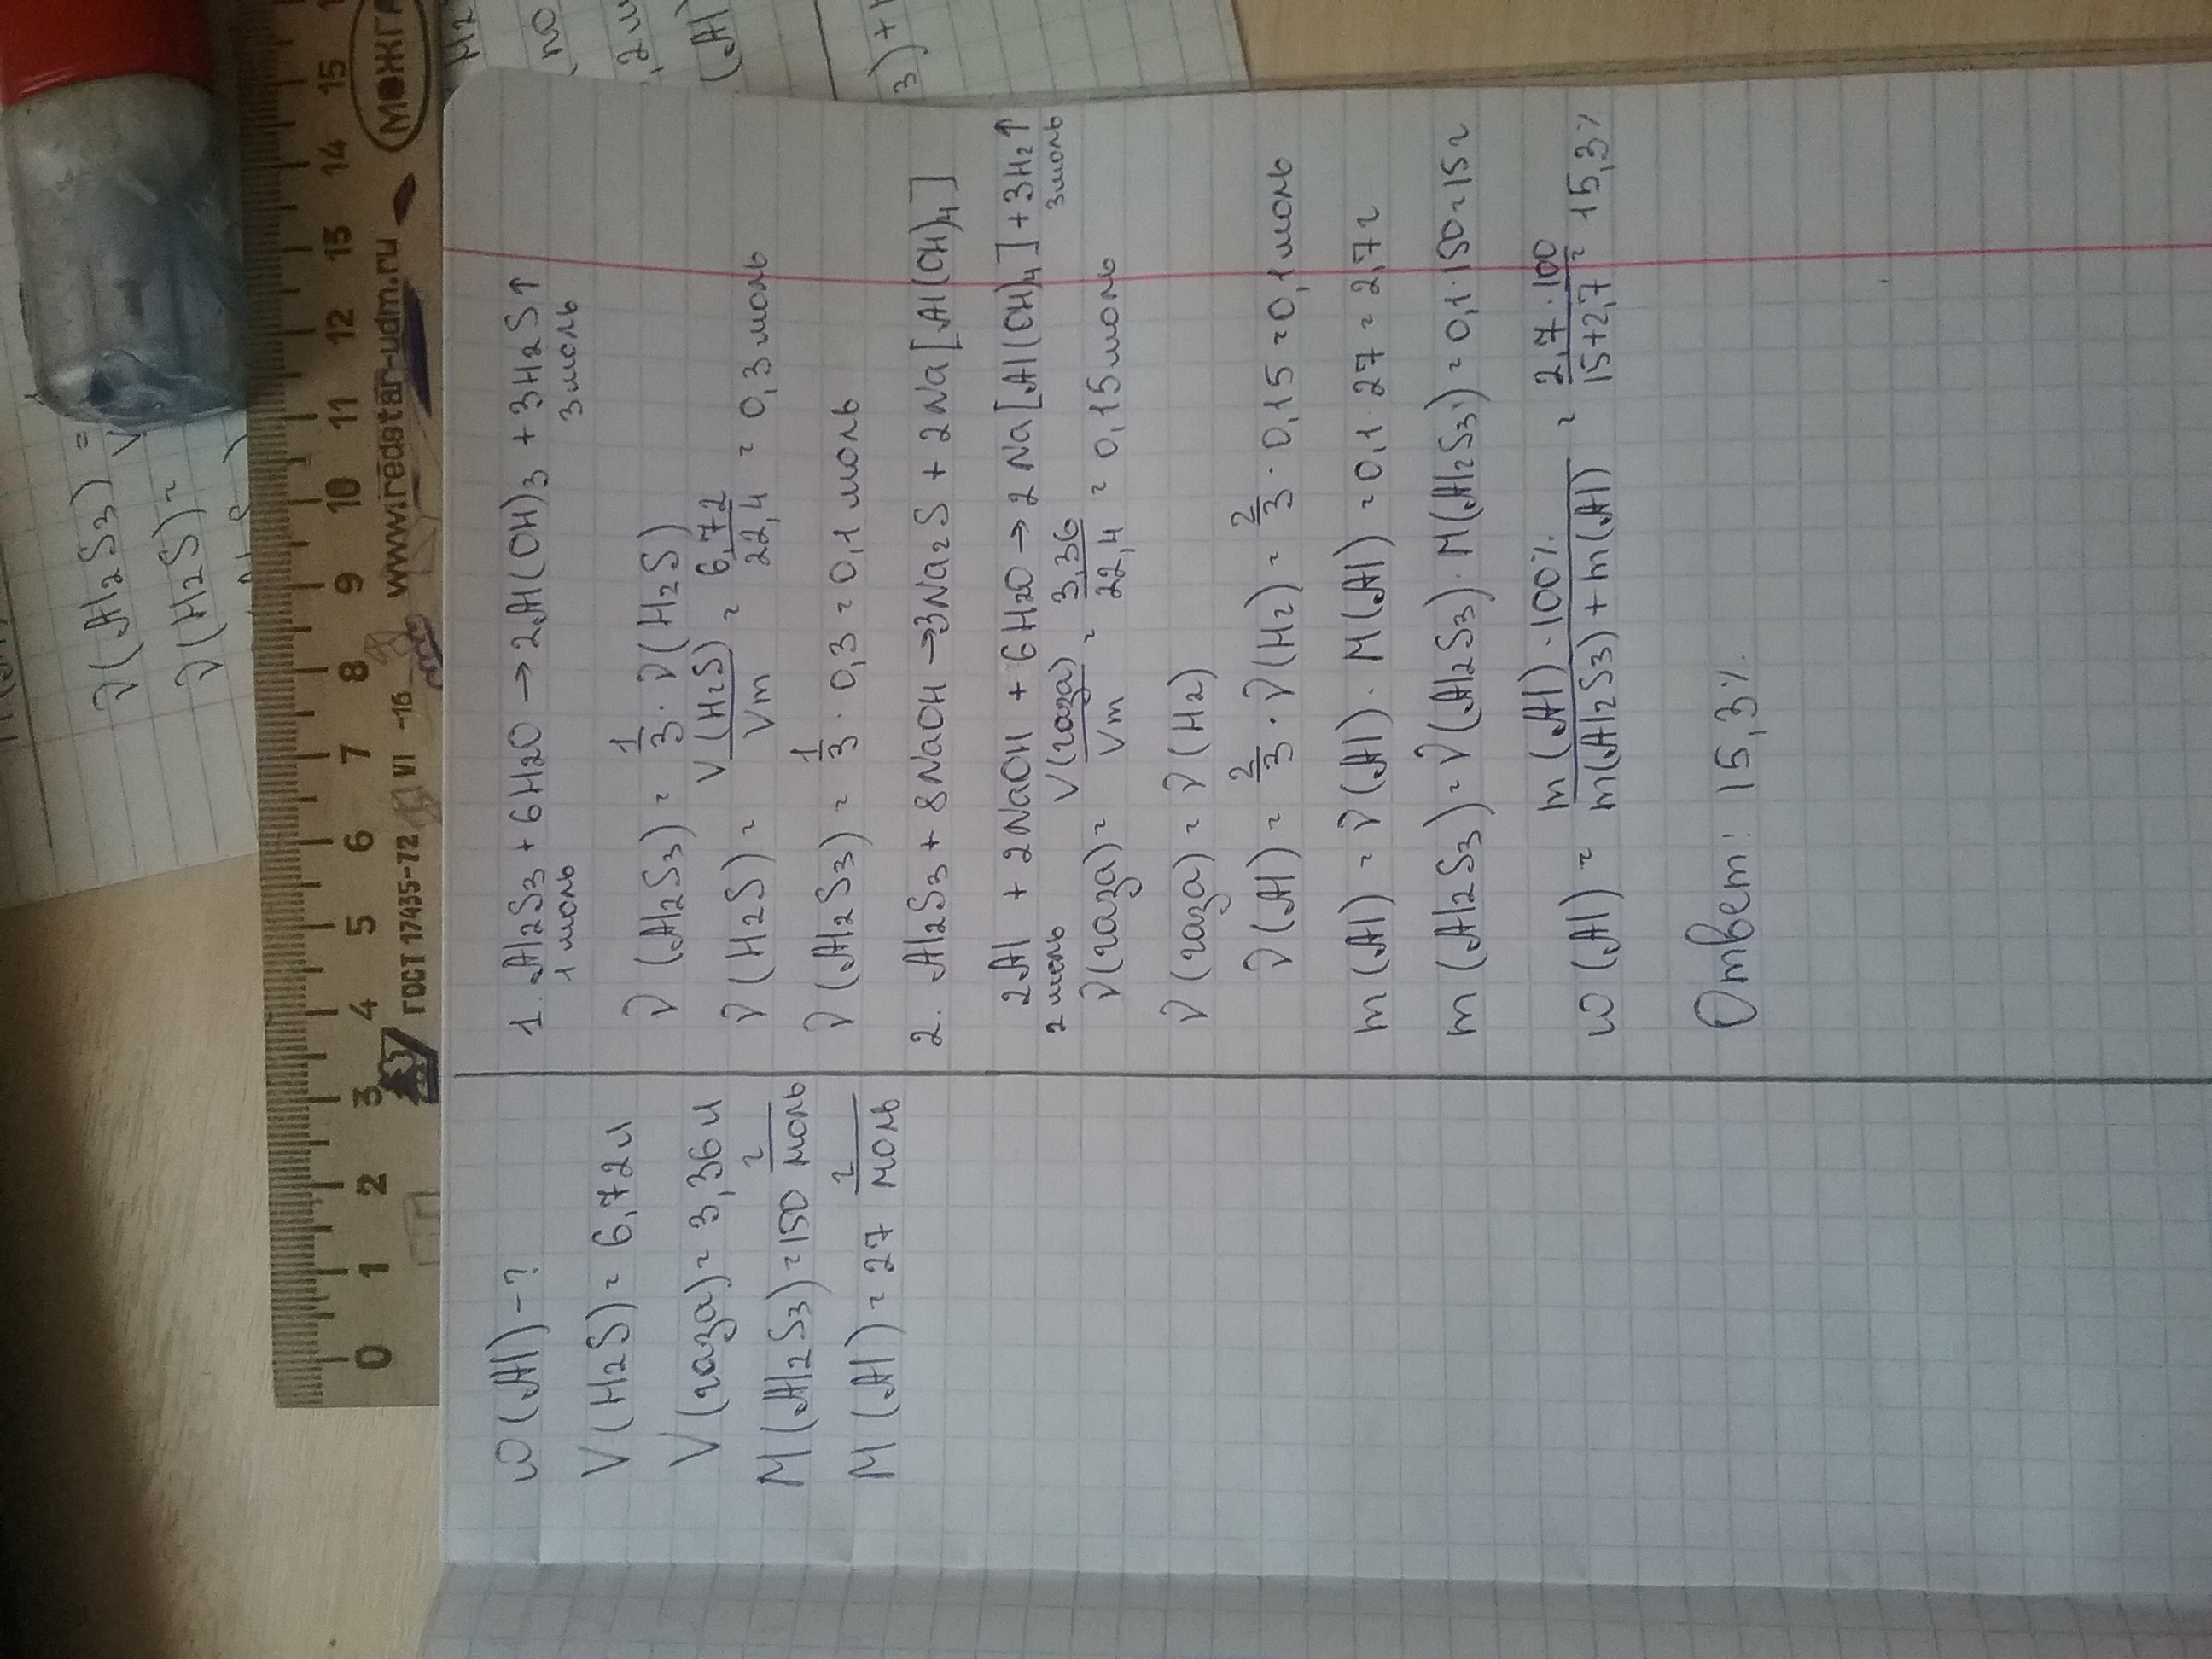 ω(Al) - ?
V(H2S) = 6,72 л
V(газа) = 3,36 л
M(Al2S3) = 150 г/моль
M(Al) = 27 г/моль
1. Al2S3 + 6H2O → 2Al(OH)3 + 3H2S↑
1 моль 3 моль
ν(Al2S3) = 1/3 · ν(H2S)
ν(H2S) = V(H2S)/Vm = 6,72/22,4 = 0,3 моль
ν(Al2S3) = 1/3 · 0,3 = 0,1 моль
2. Al2S3 + 8NaOH → 3Na2S + 2Na[Al(OH)4]
2Al + 2NaOH + 6H2O → 2Na[Al(OH)4] + 3H2↑
2 моль 3 моль
ν(газа) = V(газа)/Vm = 3,36/22,4 = 0,15 моль
ν(газа) = ν(H2)
ν(Al) = 2/3 · ν(H2) = 2/3 · 0,15 = 0,1 моль
m(Al) = ν(Al) · M(Al) = 0,1 · 27 = 2,7 г
m(Al2S3) = ν(Al2S3) · M(Al2S3) = 0,1 · 150 = 15 г
ω(Al) = m(Al) · 100% / m(Al2S3) + m(Al) = 2,7 · 100 / 15+2,7 = 15,3%
Ответ: 15,3%
0 1 2 3 4 5 6 7 8 9 10 11 12 13 14 15
ГОСТ 17435-72 VI -16 www.redstar-udm.ru МОЖГА
ν(Al2S3) =
ν(H2S) =